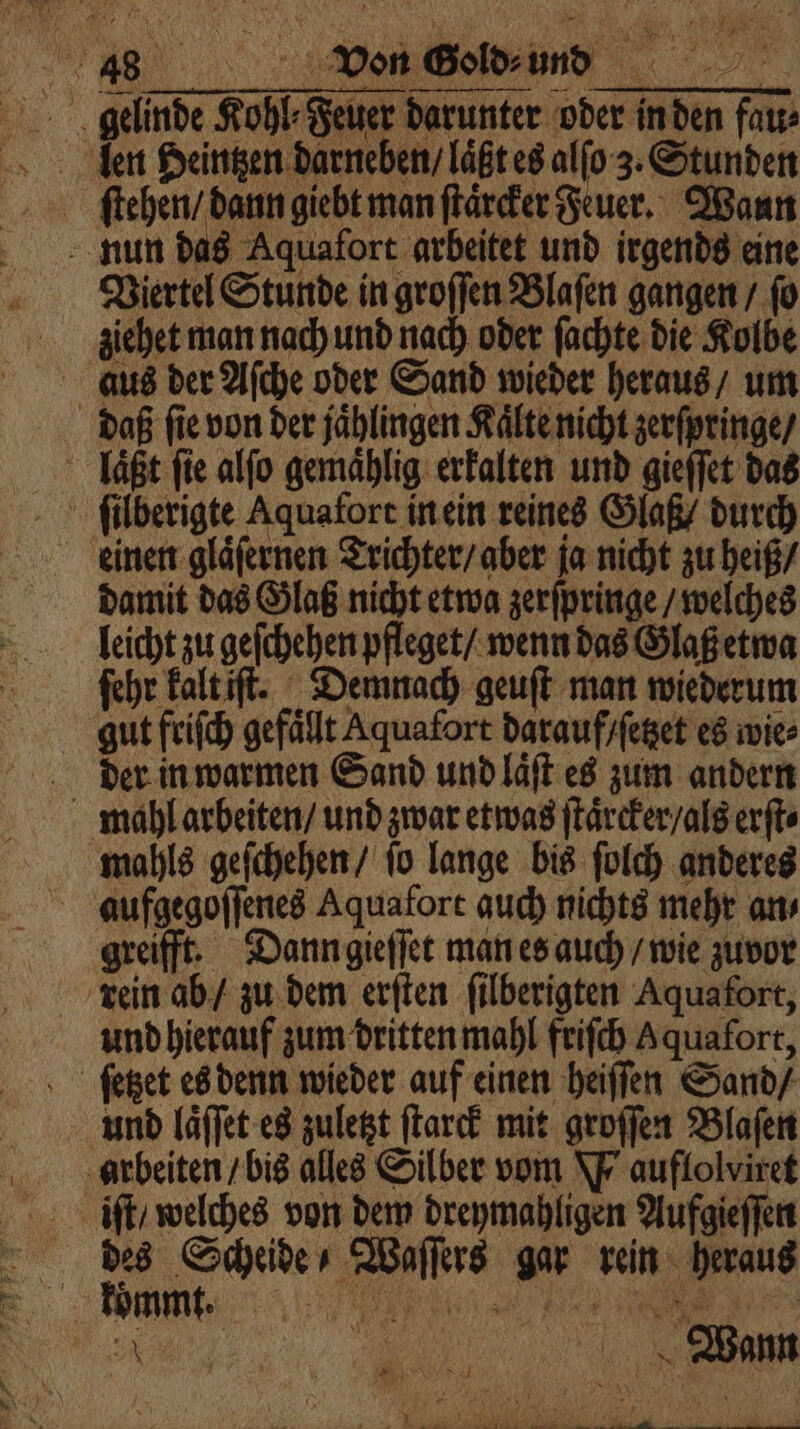 48 Von Gold⸗und
gelinde Kohl⸗Feuer darunter oder in den fau⸗
len Heintzen darneben/ laͤßt es alſo 3. Stunden
ſtehen/ dann giebt man ſtaͤrcker Feuer. Wann
nun das Aquafort arbeitet und irgends eine
Viertel Stunde in groſſen Blaſen gangen / ſo
ziehet man nach und nach oder ſachte die Kolbe
aus der Aſche oder Sand wieder heraus/ um
daß ſie von der jaͤhlingen Kaͤlte nicht zerſpringe/
laͤßt ſie alſo gemaͤhlig erkalten und gieſſet das
ſilberigte Aquafort in ein reines Glaß/ durch
einen glaͤſernen Trichter/ aber ja nicht zu heiß/
damit das Glaß nicht etwa zerſpringe / welches
leicht zu geſchehen pfleget/ wenn das Glaß etwa
ſehr kalt iſt. Demnach geuſt man wiederum
gut friſch gefaͤllt Aquafort darauf/ ſetzet es wie⸗
der in warmen Sand und laͤſt es zum andern
mahl arbeiten/ und zwar etwas ſtaͤrcker/ als erſt⸗
mahls geſchehen / ſo lange bis ſolch anderes
aufgegoſſenes Aquafort auch nichts mehr an⸗
greifft. Dann gieſſet man es auch / wie zuvor
rein ab/ zu dem erſten ſilberigten Aquafort,
und hierauf zum dritten mahl friſch Aquafort,
ſetzet es denn wieder auf einen heiſſen Sand/
und laͤſſet es zuletzt ſtarck mit groſſen Blaſen
arbeiten / bis alles Silber vom 🜆 aufſolviret
iſt/ welches von dem dreymahligen Aufgieſſen
des Scheide⸗Waſſers gar rein heraus
koͤmmt.
Wann